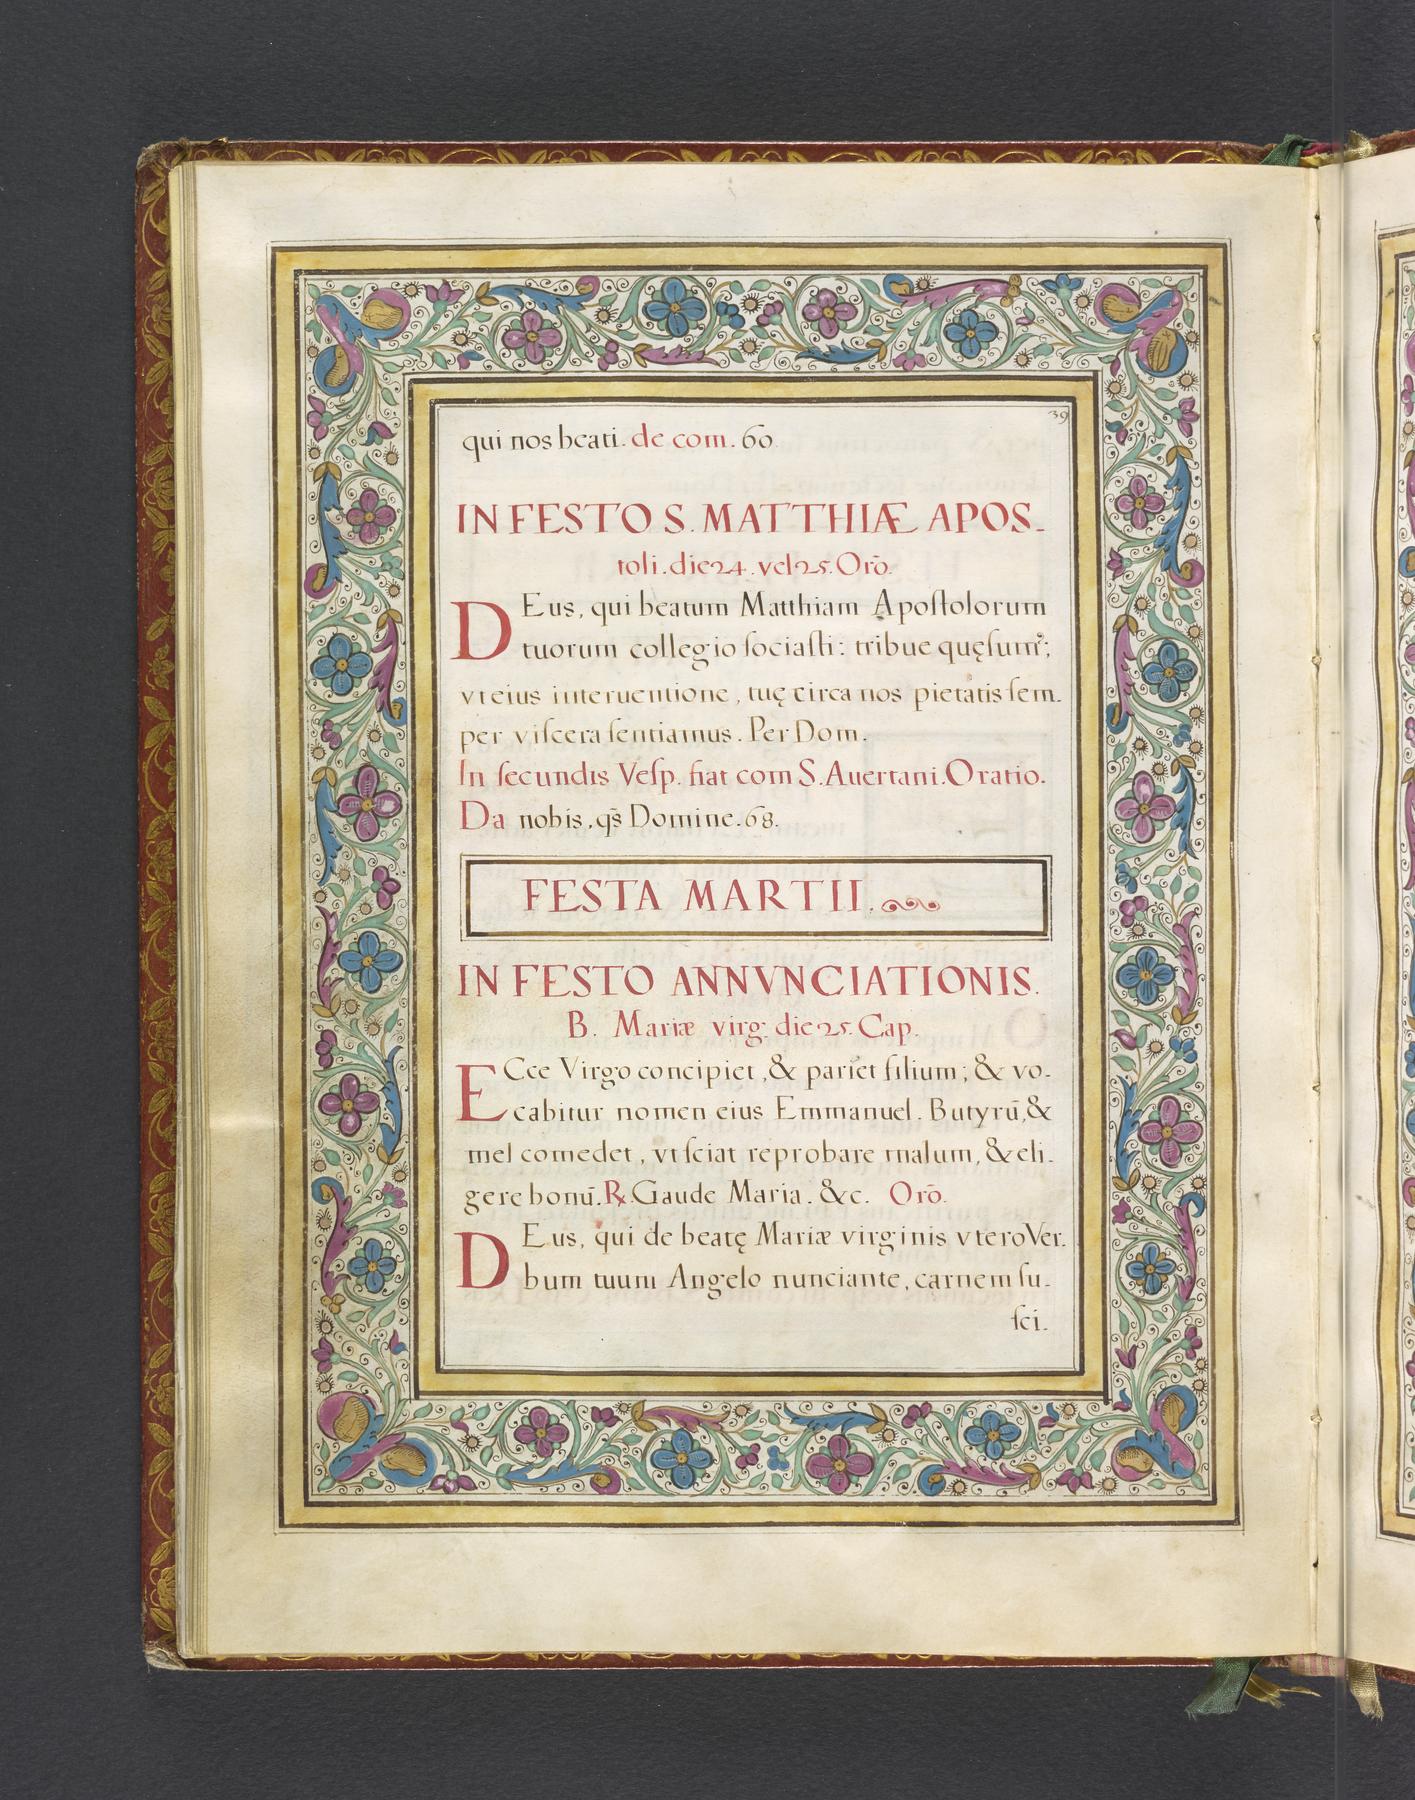 39
qui nos beati. de com. 60
IN FESTO S. MATTHIÆ APOS-
toli. die 24. vel 25. Orõ.
DEus, qui beatum Matthiam Apoſtolorum
tuorum collegio ſociaſti: tribue quęſumꝰ;
vt eius interuentione, tuę circa nos pietatis ſem.
per viſcera ſentiamus. Per Dom.
In ſecundis Veſp. fiat com S. Auertani. Oratio.
Da nobis, qs̃ Domine. 68.
FESTA MARTII.
IN FESTO ANNVNCIATIONIS.
B. Mariæ virg: die 25. Cap.
ECce Virgo concipiet, & pariet filium; & vo-
cabitur nomen eius Emmanuel. Butyrũ, &
mel comedet, vt ſciat reprobare malum, & eli-
gere bonũ. ℞. Gaude Maria. &c. Orõ.
DEus, qui de beatę Mariæ virginis vtero Ver.
bum tuum Angelo nunciante, carnem ſu-
ſci-